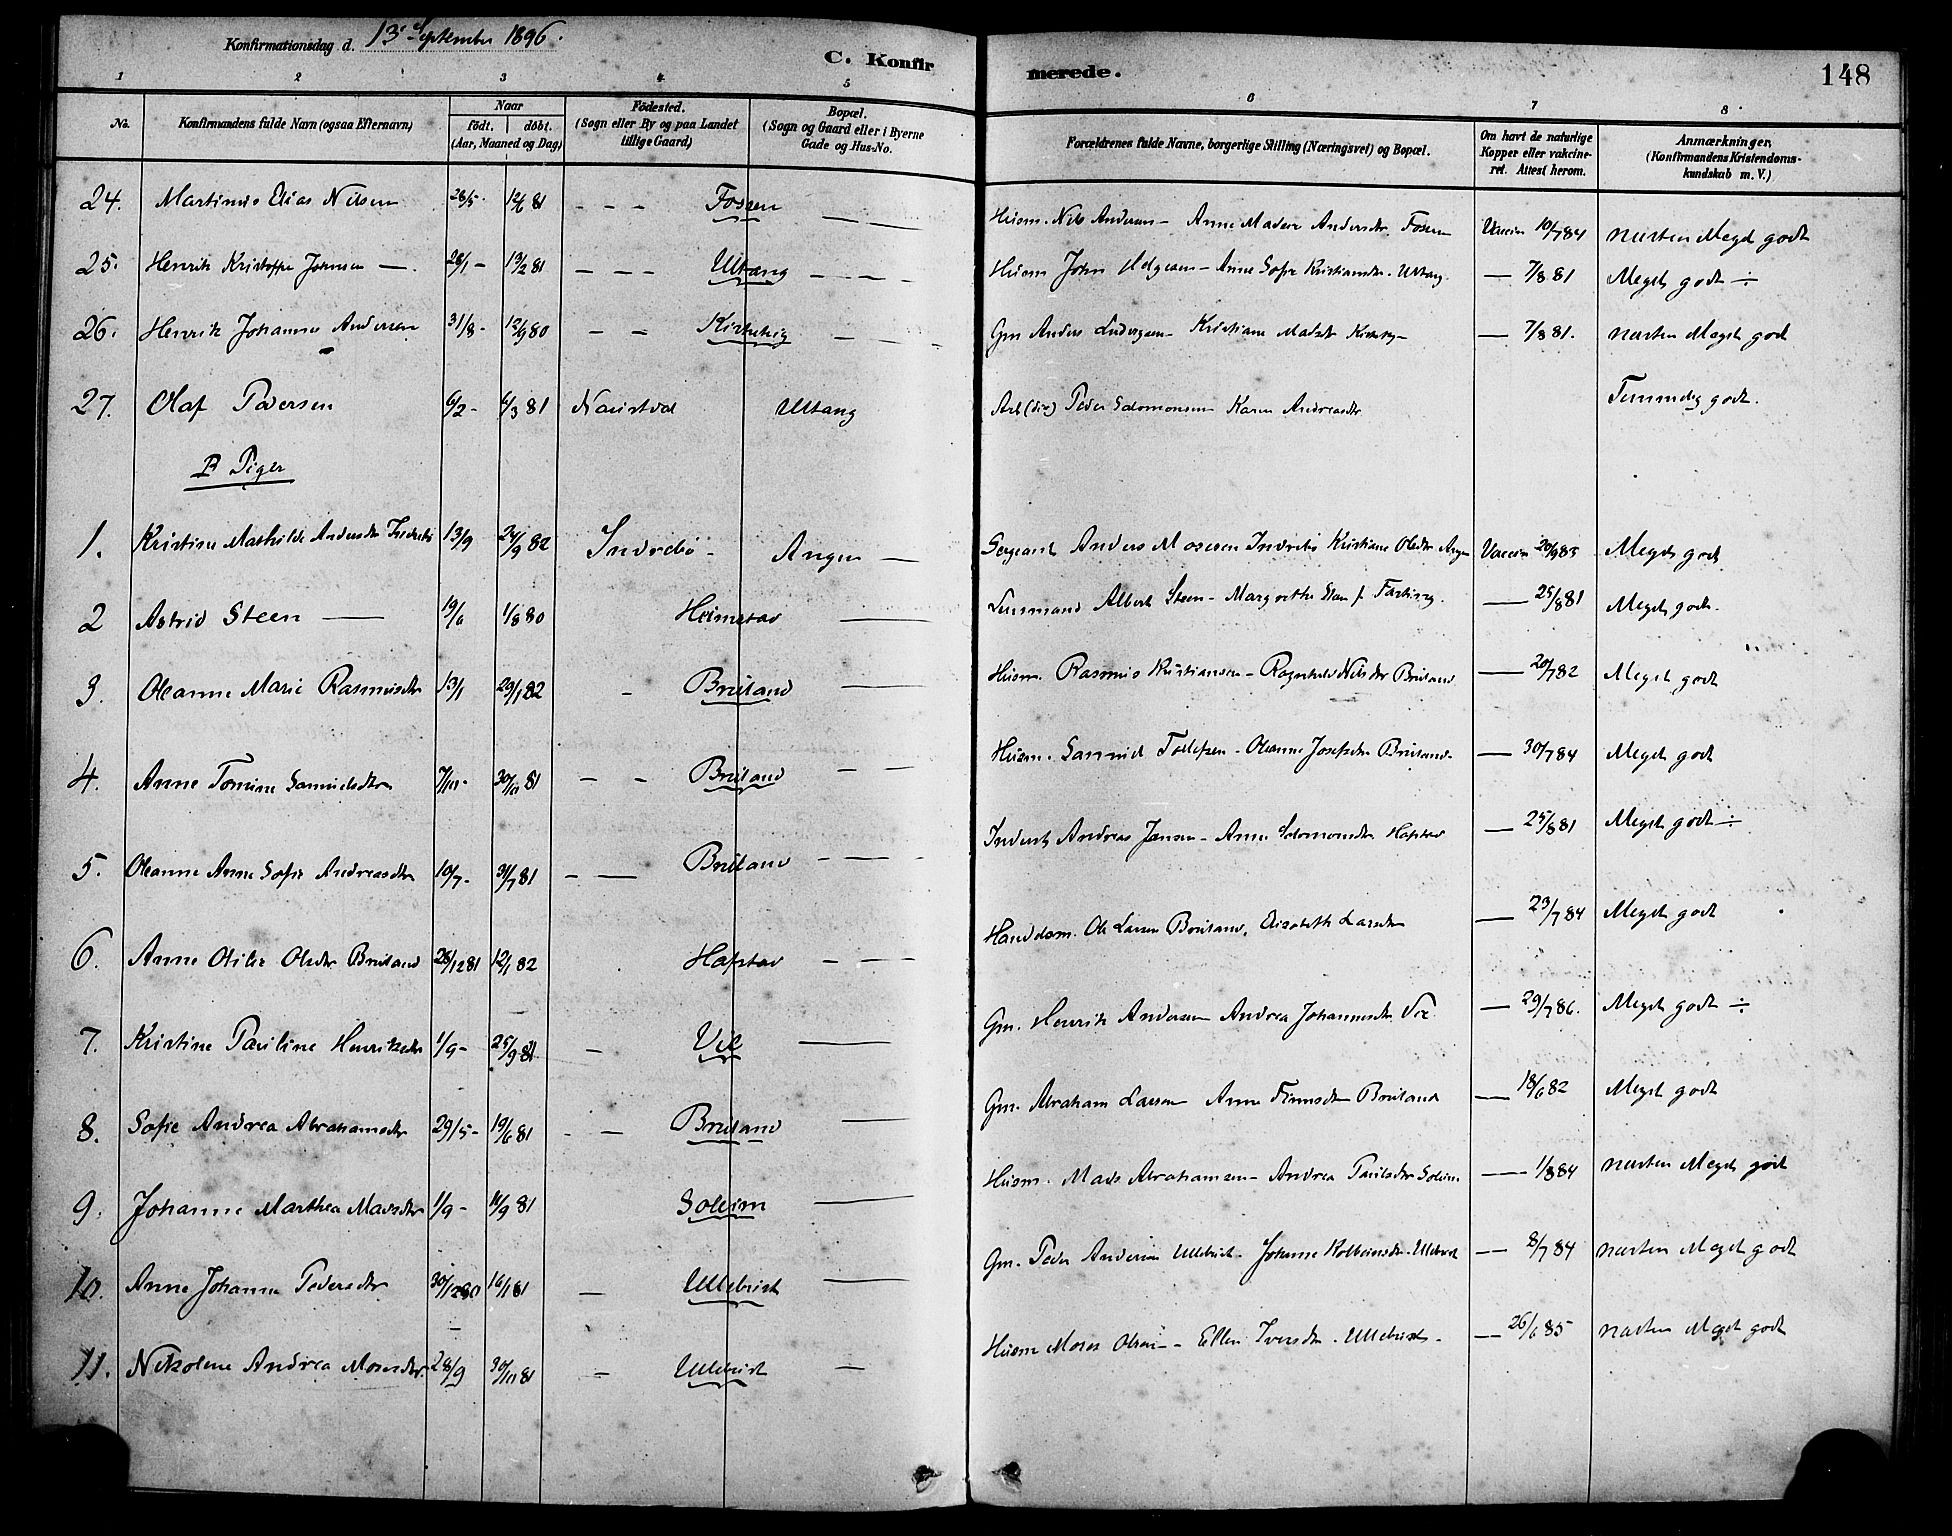 Konfirmationsdag d. 13' September 1896.
C. Konfirmerede.
148
1 2 3 4 5 6 7 8
No. Konfirmandens fulde Navn (ogsaa Efternavn)
Naar födt. döbt. (Aar, Maaned og Dag)
Födested. (Sogn eller By og paa Landet tillige Gaard)
Bopæl. (Sogn og Gaard eller i Byerne Gade og Hus-No.
Forældrenes fulde Navne, borgerlige Stilling (Næringsvei) og Bopæl.
Om havt de naturlige Kopper eller vakcineret. Attest herom.
Anmærkninger, (Konfirmandens Kristendomskundskab m. V.)
24. Martinus Elias Nilsen 28/5 - 12/6 81 - - - Fossen - - Husm. Nils Andersen - Anne Madere Andersdtr Fossen Vaccin 10/7 84 næsten Meget godt
25. Henrik Kristoffer Johnsen - 28/1 - 13/2 81 - - - Ullang - - - Husm John Helgesen - Anne Sofie Kristiansdtr. - 7/8 81 Meget godt ÷
26. Henrik Johannes Andersen 31/8 - 12/9 80 - - Kirkebig - - - Gm Anders Ludvigsen - Kristiane Madsdtr - 7/8 81. næsten Meget god
27. Olaf Pedersen 6/2 - 6/3 81 Naustdal Arb (dix) Peder Salomonsen Karen Andreasdtr Temmelig godt.
B Piger
1. Kristine Mathilde Andersdtr Indrebö 13/9 24/9 82 Indrebö - Angen - Sergeant Anders Mosesen Indrebö Kristiane Olsdtr Angen Vaccin 20/9 83 Meget godt
2 Astrid Steen - 19/6 1/8 80 Heimstad - Lensmand Albert Steen - Margrethe Steen f. - 25/8 81 Meget godt.
3. Oleanne Marie Rasmusdtr 13/1 29/1 82 - Bruland - Husm. Rasmus Kristiansen - Ragnhild Nilsdtr Bruland - 20/7 82 Meget godt
4. Anne Tomine Samuelsdtr 7/10 - 30/10 81 - - Bruland - - Husm. Samuel Tollefsen - Oleanne Josefsdtr Bruland - 30/7 84 Meget godt
5. Oleanne Anne Sofie Andreasdtr 10/7 - 31/7 81 - - Bruland - - - Inderst Andreas Jansen - Anne Salomonsdtr Hafstad - 25/8 81 Meget godt ÷
6. Anne Otilie Olsdtr Bruland 28/12 81 12/1 82 Hafstad - - Ole Larsen Bruland, Elisabeth Larsdtr - 23/7 84 Meget godt
7. Kristine Pauline Henriksdtr 1/9 - 25/9 81 - Vie - Gm. Henrik Andersen Andrea Johannesdtr. Vie - 29/7 86. Meget godt ÷
8. Sofie Andrea Abrahamsdtr 29/5 - 19/6 81 - - Bruland - Gm. Abraham Larsen Anne Finnsdtr Bruland - 18/6 82 Meget godt
9. Johanne Marthea Madsdtr 1/9 - 11/9 81 Soleim - Husm. Mads Abrahamsen - Andrea Paulsdtr Soleim - 1/8 84 næsten Meget godt
10. Anne Johanne Pedersdtr 30/12 80 16/1 81 - Ullebust - Gm. Peder Andersen Ullebust - Johanne Kolbeinsdtr. Ullebust - 8/7 84 næsten Meget godt
11. Nikoline Andrea Mosesdtr. 28/9 30/10 81 - Ullebust - Husm Moses Olsen - Ellen Iversdtr. Ullebust - - 26/6 85 næsten Meget godt